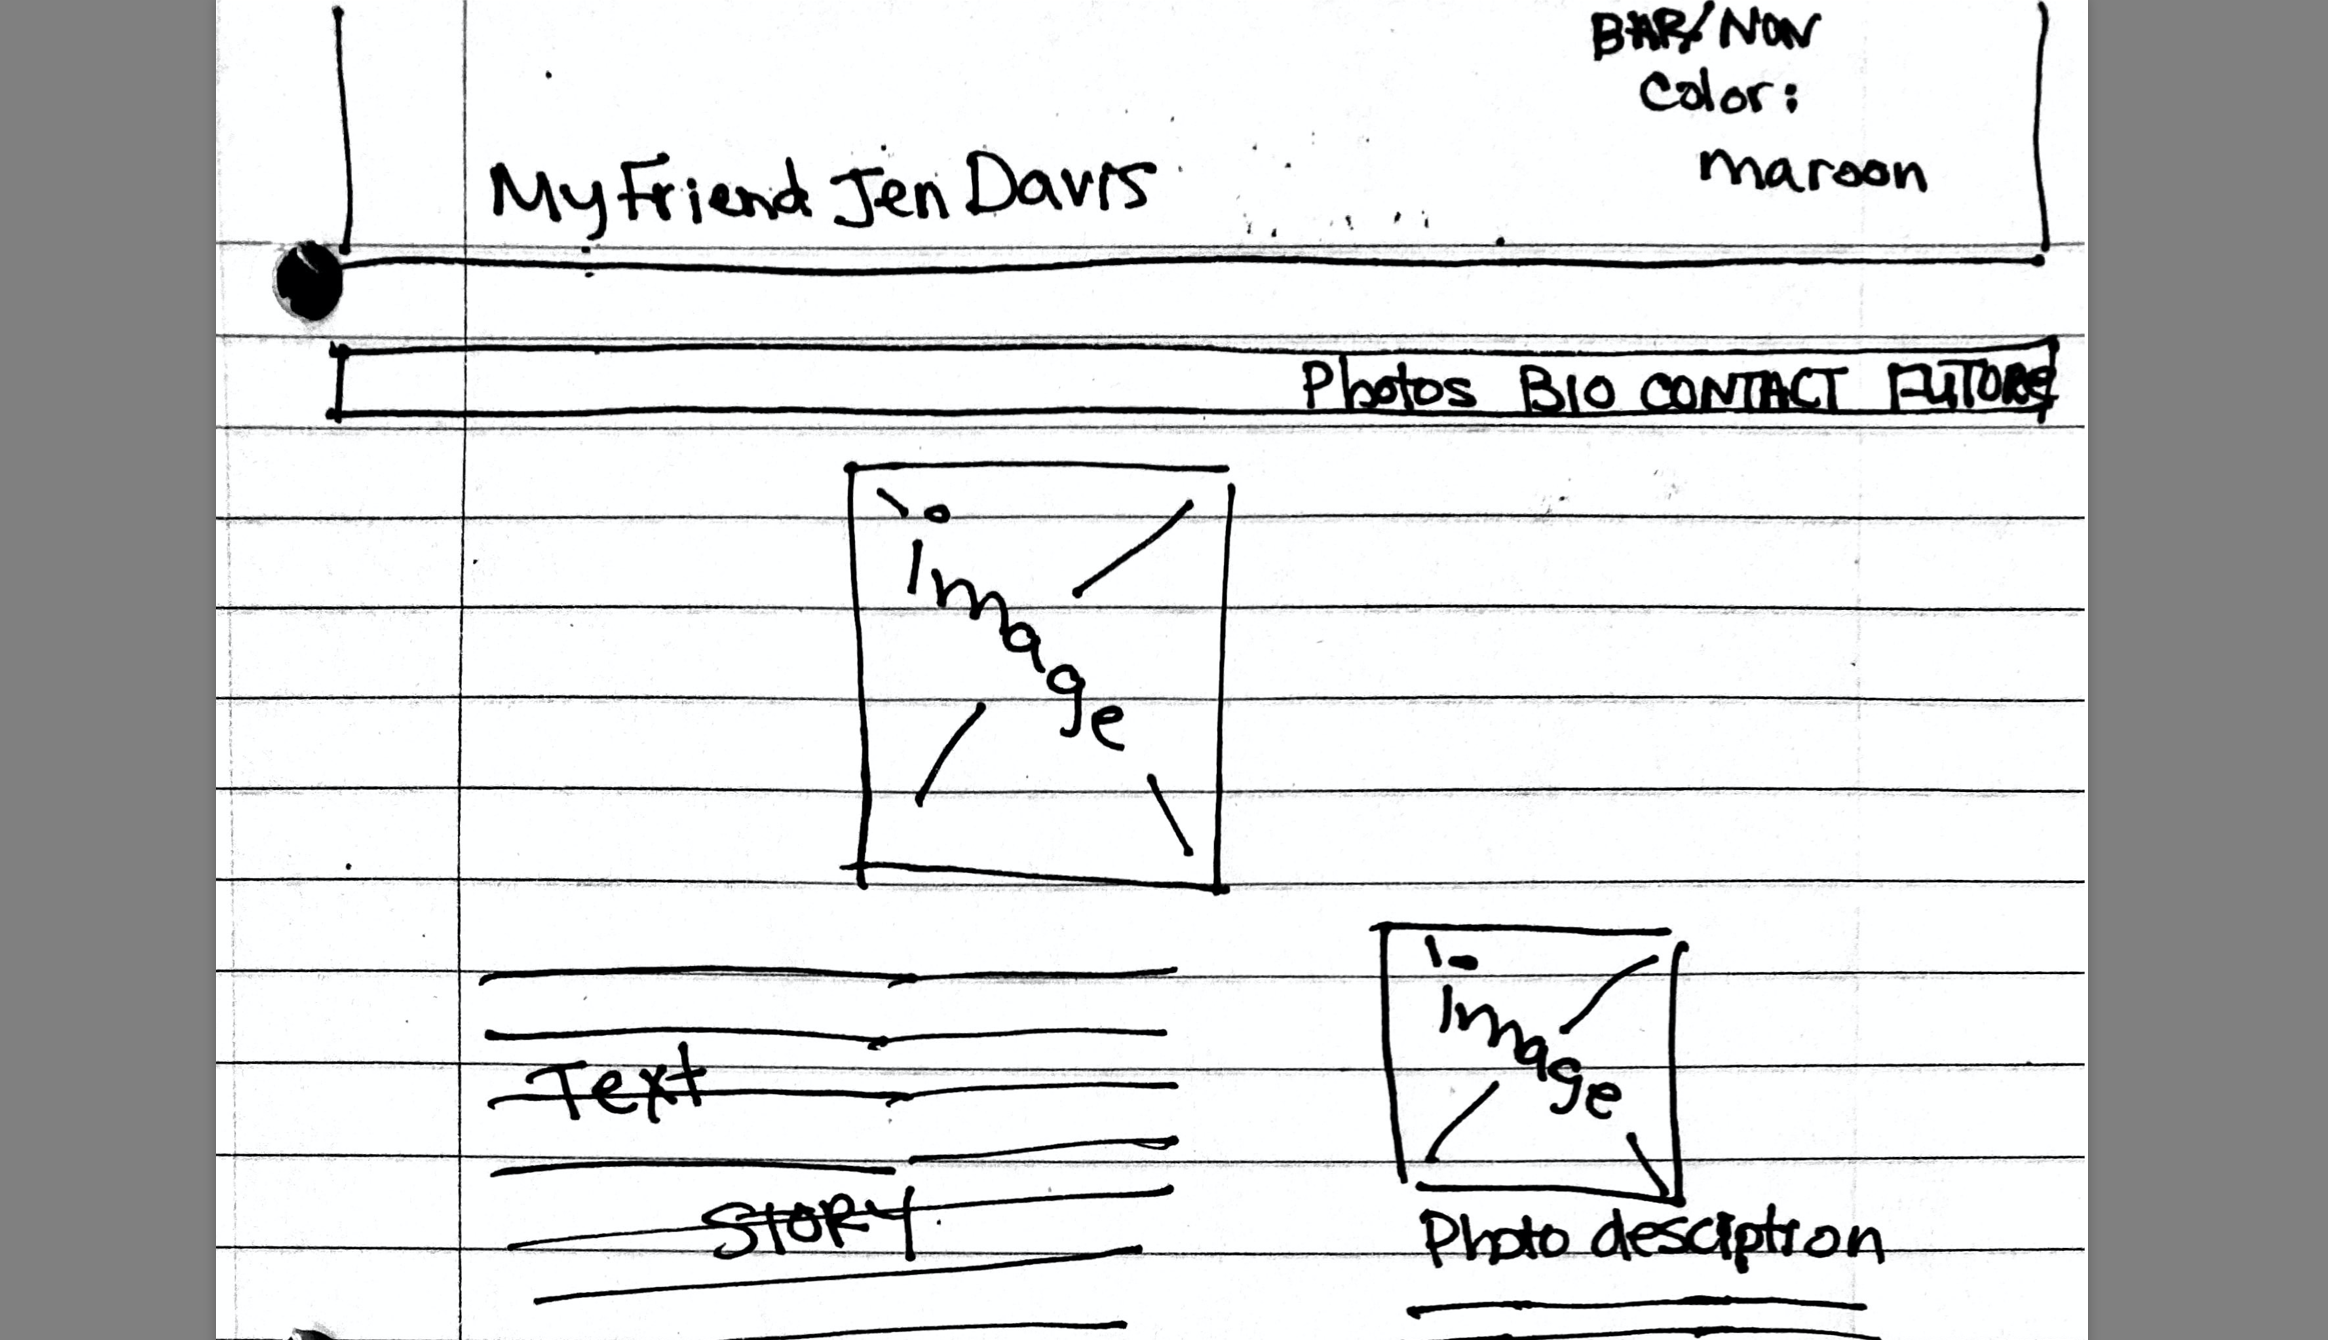 BAR/NON
Color:
maroon
My Friend Jen Davis
Photos BIO CONTACT FUTURE
Image
Image
Text
STORY
Photo desciption